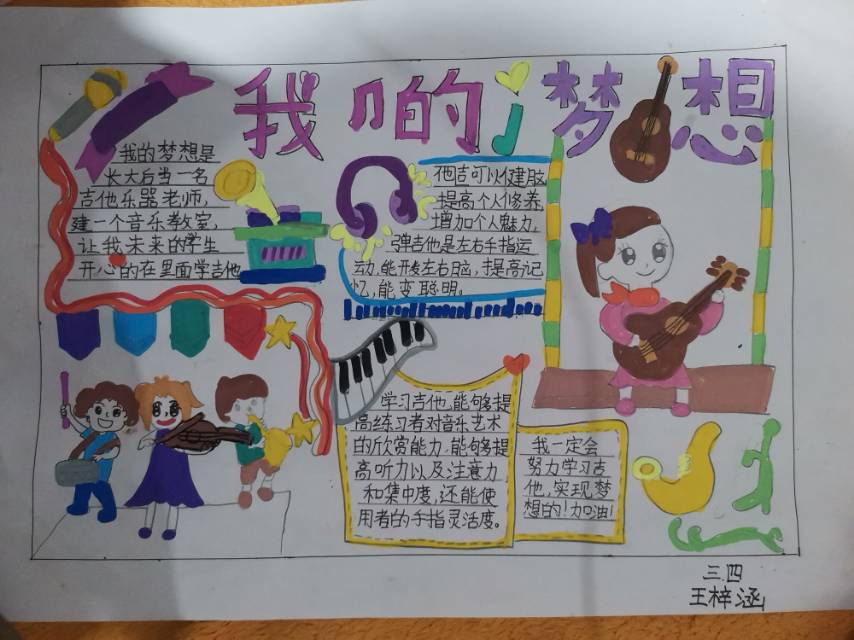 我的梦想
我的梦想是
长大后当一名
吉他乐器老师,
建一个音乐教室,
让我未来的学生
开心的在里面学吉他
他吉可以健脑,
提高个人修养,
增加个人魅力,
弹吉他是左右手指运
动,能开发左右脑,提高记
忆,能变聪明。
学习吉他,能够提
高练习者对音乐艺术
的欣赏能力,能够提
高听力以及注意力
和集中度,还能使
用者的手指灵活度。
我一定会
努力学习吉
他,实现梦
想的!加油!
三.四
王梓涵